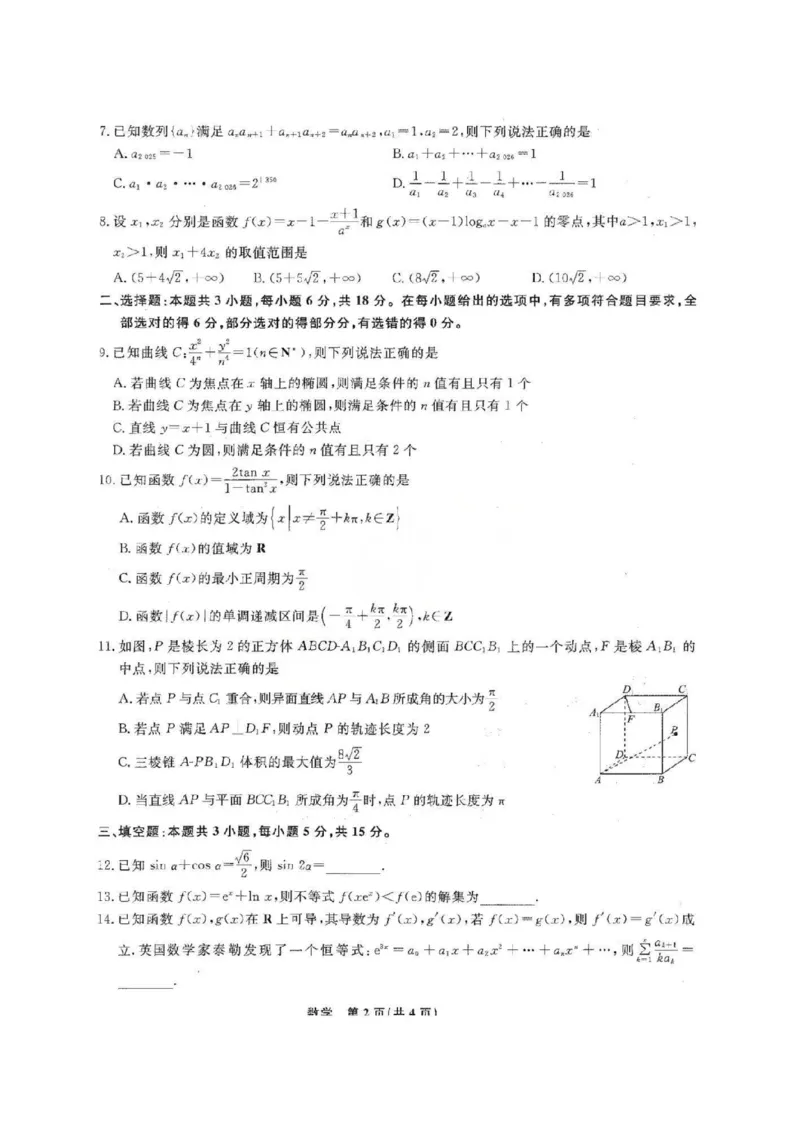 7.已知数列{aₙ}满足 aₙaₙ₊₁+aₙ₊₁aₙ₊₂=aₙaₙ₊₂,a₁=1,a₂=2,则下列说法正确的是
A. a₂₀₂₅=-1 B. a₁+a₂+⋯+a₂₀₂₆=1
C. a₁·a₂·⋯·a₂₀₂₆=2¹³⁵⁰ D. 1/a₁-1/a₂+1/a₃-1/a₄+⋯-1/a₂₀₂₆=1
8.设 x₁,x₂ 分别是函数 f(x)=x-1-(x+1)/aˣ 和 g(x)=(x-1)logₐx-x-1 的零点,其中a>1,x₁>1,
x₂>1,则 x₁+4x₂ 的取值范围是
A. (5+4√2,+∞) B. (5+5√2,+∞) C. (8√2,+∞) D. (10√2,+∞)
二、选择题:本题共 3 小题,每小题 6 分,共 18 分。在每小题给出的选项中,有多项符合题目要求,全
部选对的得 6 分,部分选对的得部分分,有选错的得 0 分。
9.已知曲线 C:x²/4ⁿ+y²/n⁴=1(n∈N*),则下列说法正确的是
A.若曲线 C 为焦点在 x 轴上的椭圆,则满足条件的 n 值有且只有 1 个
B.若曲线 C 为焦点在 y 轴上的椭圆,则满足条件的 n 值有且只有 1 个
C.直线 y=x+1 与曲线 C 恒有公共点
D.若曲线 C 为圆,则满足条件的 n 值有且只有 2 个
10.已知函数 f(x)=2tan x/(1-tan²x),则下列说法正确的是
A.函数 f(x)的定义域为{x|x≠π/2+kπ,k∈Z}
B.函数 f(x)的值域为 R
C.函数 f(x)的最小正周期为π/2
D.函数|f(x)|的单调递减区间是(-π/4+kπ/2,kπ/2),k∈Z
11.如图,P 是棱长为 2 的正方体 ABCD-A₁B₁C₁D₁ 的侧面 BCC₁B₁ 上的一个动点,F 是棱 A₁B₁ 的
中点,则下列说法正确的是
A.若点 P 与点 C₁ 重合,则异面直线 AP 与 A₁B 所成角的大小为π/2
B.若点 P 满足 AP⊥D₁F,则动点 P 的轨迹长度为 2
C.三棱锥 A-PB₁D₁ 体积的最大值为8√2/3
D.当直线 AP 与平面 BCC₁B₁ 所成角为π/4时,点 P 的轨迹长度为 π
D₁ C₁
A₁ F B₁
P
D C
A B
三、填空题:本题共 3 小题,每小题 5 分,共 15 分。
12.已知 sin α+cos α=√6/2,则 sin 2α=______.
13.已知函数 f(x)=eˣ+ln x,则不等式 f(xeˣ)<f(e)的解集为______.
14.已知函数 f(x),g(x)在 R 上可导,其导数为 f′(x),g′(x),若 f(x)=g(x),则 f′(x)=g′(x)成
立.英国数学家泰勒发现了一个恒等式:e²ˣ=a₀+a₁x+a₂x²+⋯+aₙxⁿ+⋯,则 ∑ₖ₌₁ aₖ₊₁/kaₖ=
______.
数学 第 2 页(共 4 页)